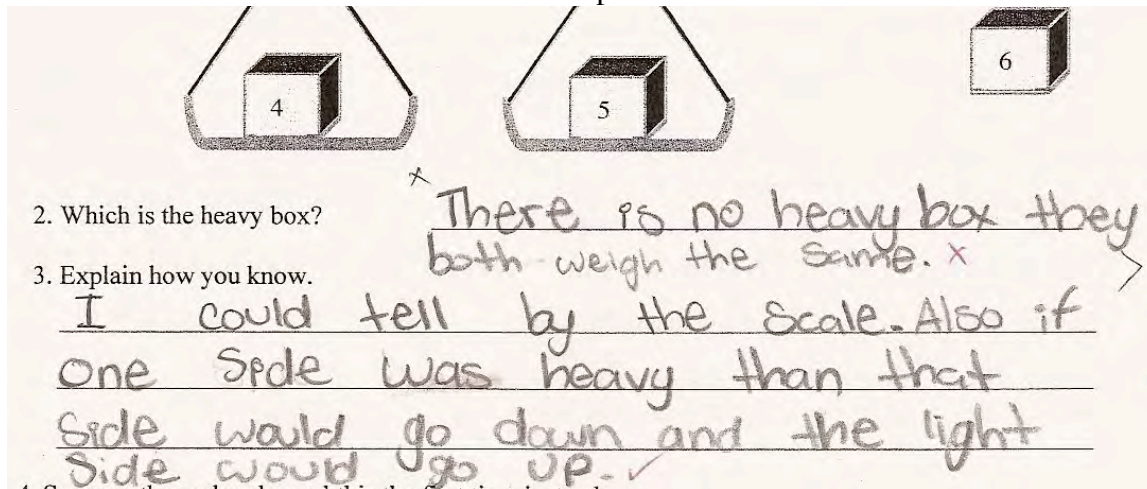 4
5
6
2. Which is the heavy box?
There is no heavy box they
both weigh the same. x
3. Explain how you know.
I could tell by the scale. Also if
one side was heavy than that
side would go down and the light
side would go up. ✓